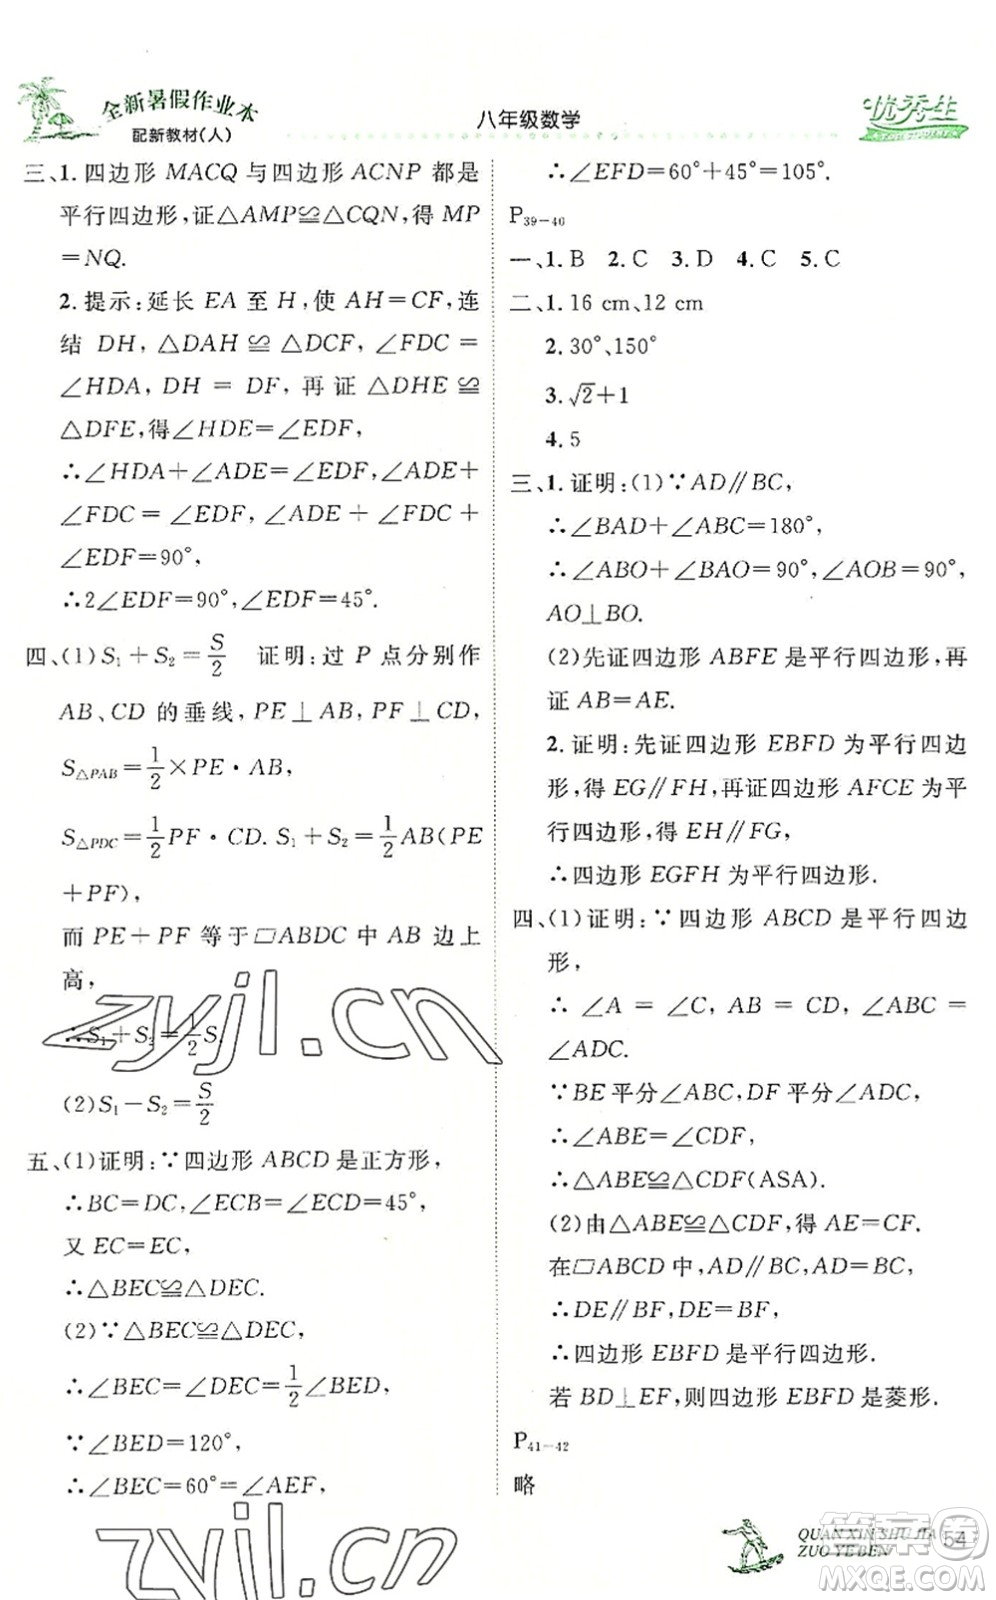 全新暑假作业本
配新教材(人)
八年级数学
优秀生
三、1.四边形 MACQ 与四边形 ACNP 都是
平行四边形,证△AMP≌△CQN,得 MP
=NQ.
2.提示:延长 EA 至 H,使 AH=CF,连
结 DH,△DAH ≌ △DCF,∠FDC =
∠HDA,DH = DF,再证 △DHE ≌
△DFE,得∠HDE=∠EDF,
∴∠HDA+∠ADE=∠EDF,∠ADE+
∠FDC = ∠EDF,∠ADE + ∠FDC +
∠EDF=90°,
∴2∠EDF=90°,∠EDF=45°.
四、(1)S₁+S₂=S/2 证明:过 P 点分别作
AB、CD 的垂线,PE⊥AB,PF⊥CD,
S△PAB=1/2×PE·AB,
S△PDC=1/2PF·CD.S₁+S₂=1/2AB(PE
+PF),
而 PE+PF 等于▱ABDC 中 AB 边上
高,
∴S₁+S₂=1/2S.
(2)S₁-S₂=S/2
五、(1)证明:∵四边形 ABCD 是正方形,
∴BC=DC,∠ECB=∠ECD=45°,
又 EC=EC,
∴△BEC≌△DEC.
(2)∵△BEC≌△DEC,
∴∠BEC=∠DEC=1/2∠BED,
∵∠BED=120°,
∴∠BEC=60°=∠AEF,
∴∠EFD=60°+45°=105°.
P39-40
一、1.B 2.C 3.D 4.C 5.C
二、1.16 cm、12 cm
2.30°、150°
3.√2+1
4.5
三、1.证明:(1)∵AD∥BC,
∴∠BAD+∠ABC=180°,
∴∠ABO+∠BAO=90°,∠AOB=90°,
AO⊥BO.
(2)先证四边形 ABFE 是平行四边形,再
证 AB=AE.
2.证明:先证四边形 EBFD 为平行四边
形,得 EG∥FH,再证四边形 AFCE 为平
行四边形,得 EH∥FG,
∴四边形 EGFH 为平行四边形.
四、(1)证明:∵四边形 ABCD 是平行四边
形,
∴ ∠A = ∠C, AB = CD, ∠ABC =
∠ADC.
∵BE 平分∠ABC,DF 平分∠ADC,
∴∠ABE=∠CDF,
∴△ABE≌△CDF(ASA).
(2)由△ABE≌△CDF,得 AE=CF.
在▱ABCD 中,AD∥BC,AD=BC,
∴DE∥BF,DE=BF,
∴四边形 EBFD 是平行四边形.
若 BD⊥EF,则四边形 EBFD 是菱形.
P41-42
略
QUAN XIN SHU JIA
ZUO YE BEN
54
zyjl.cn
zyjl.cn
答案圈
MXQE.COM